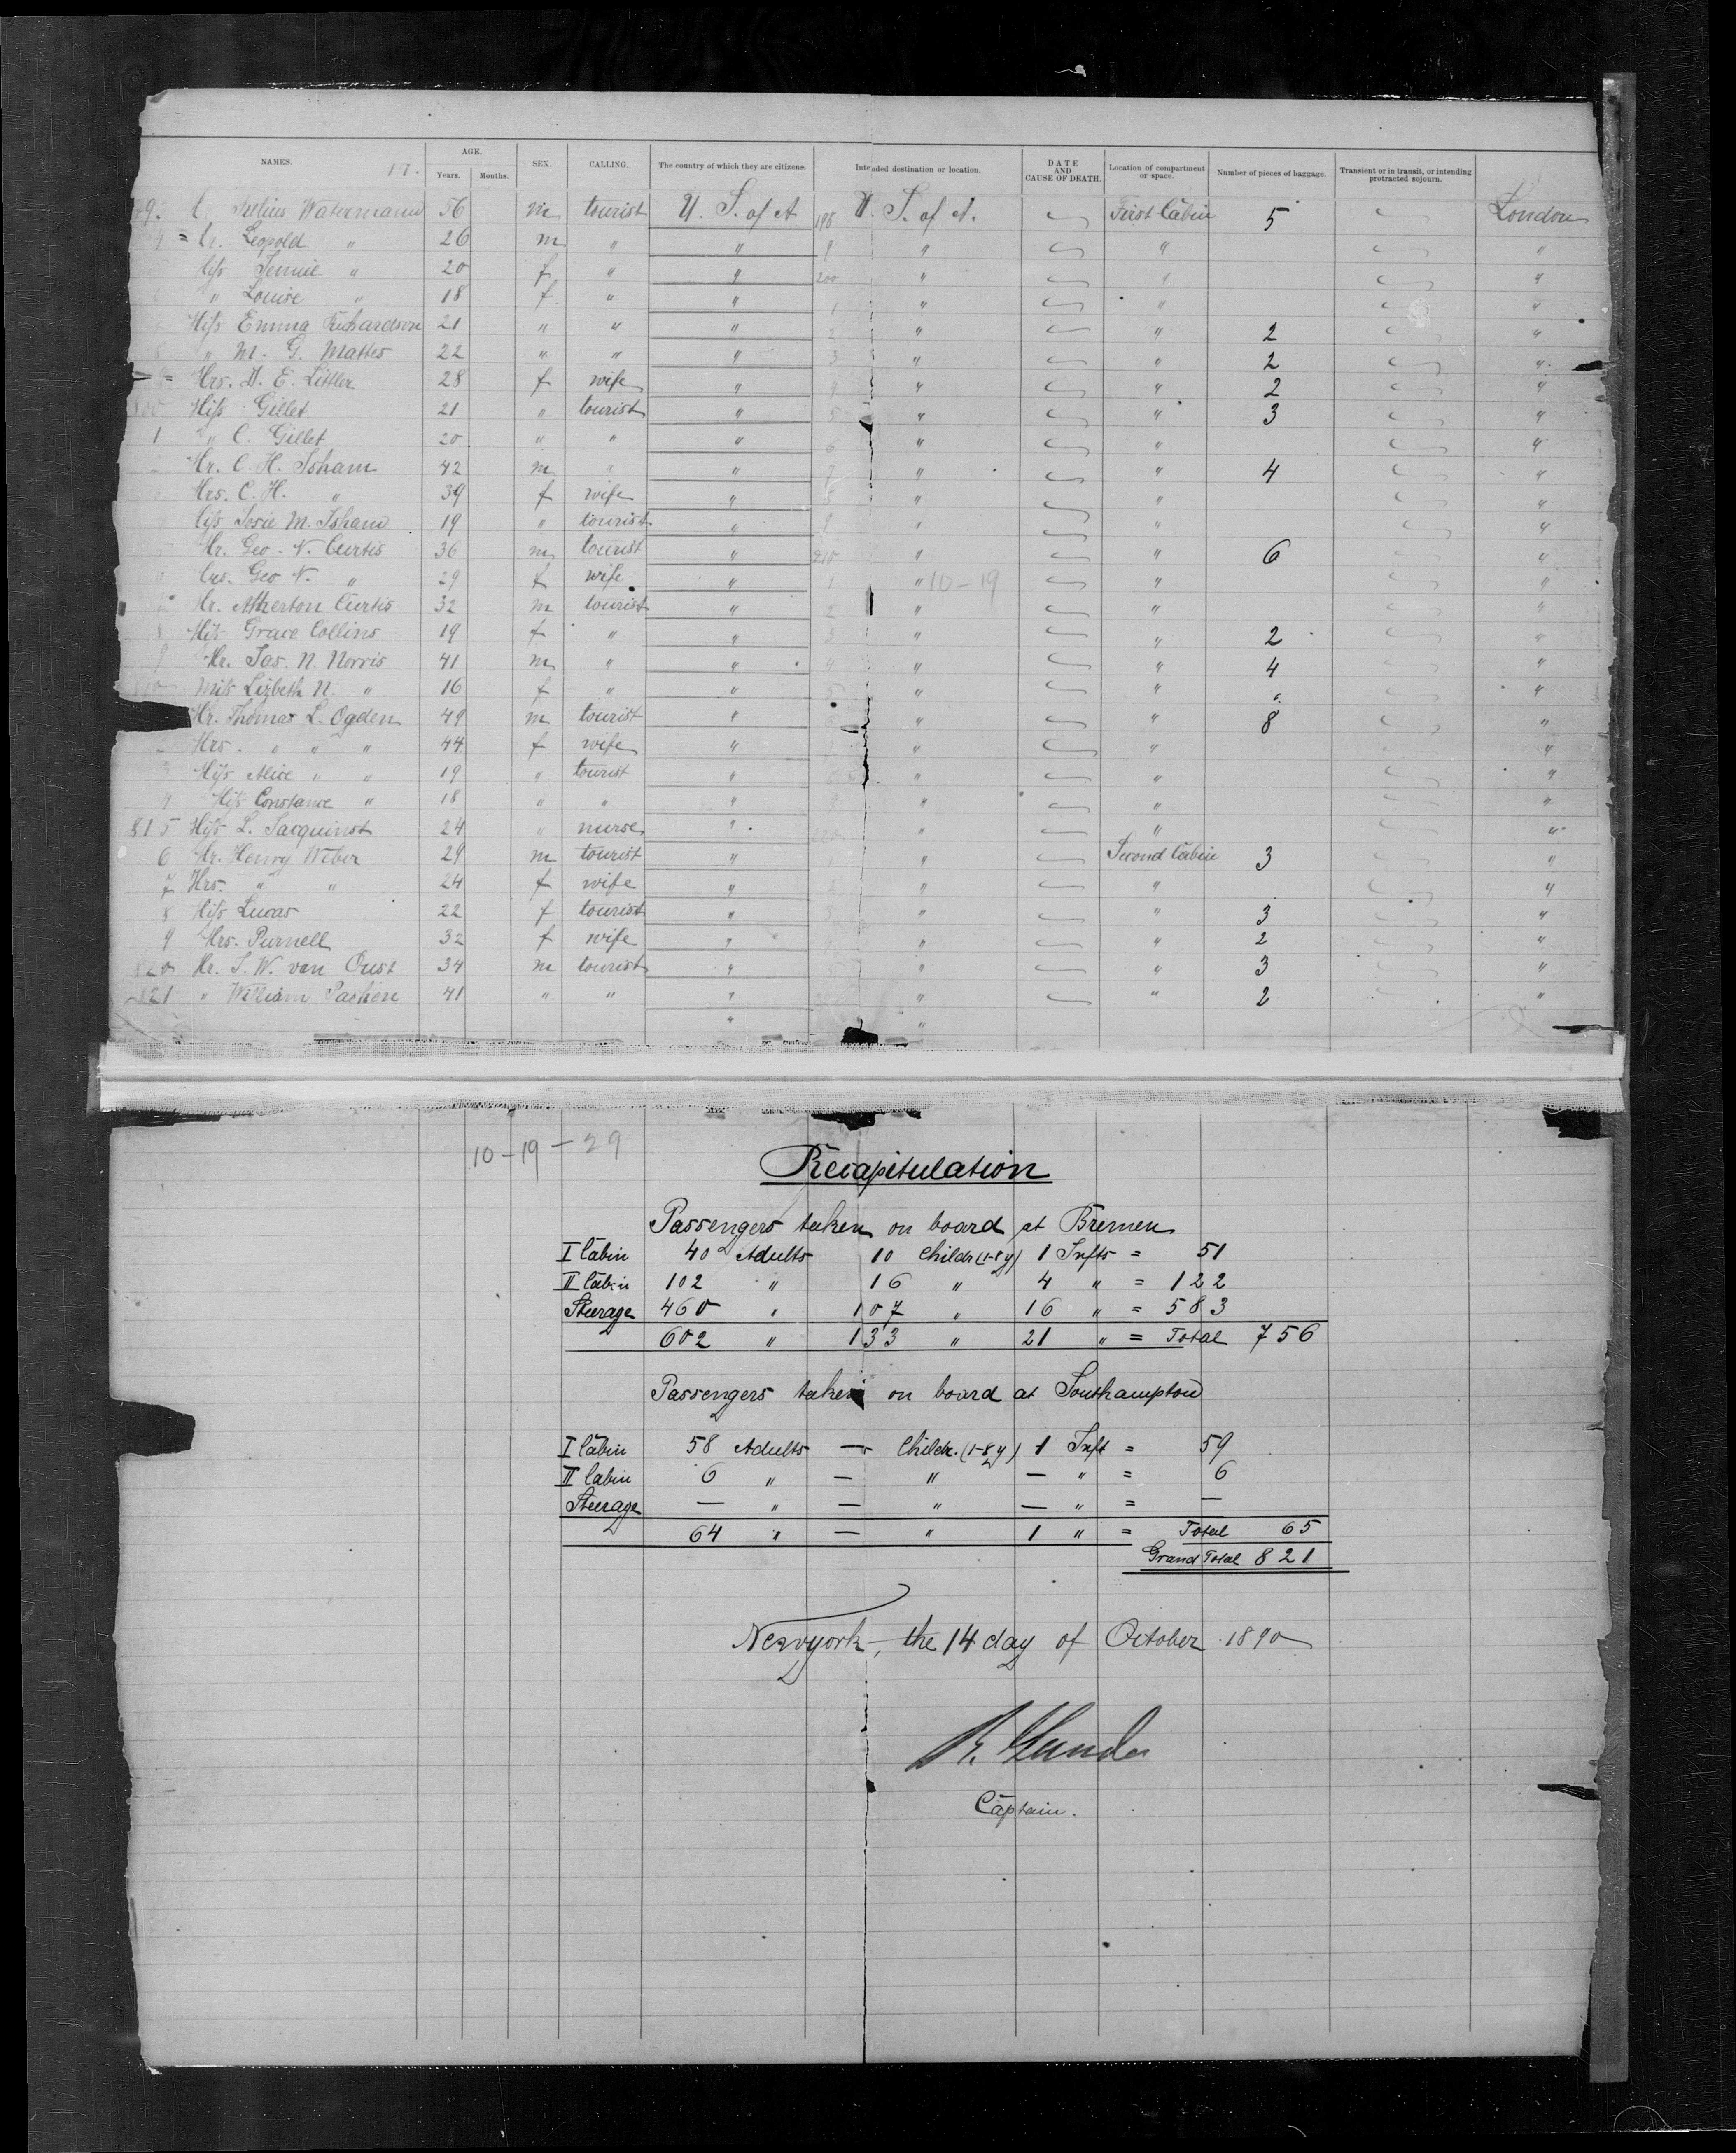 NAMES. AGE. Years. Months. SEX. CALLING. The country of which they are citizens. Intended destination or location. DATE AND CAUSE OF DEATH. Location of compartment or space. Number of pieces of baggage. Transient or in transit, or intending protracted sojourn.
Julius Watermann 56 m tourist U. S. of A 198 U. S. of A. First Cabin 5 London
Leopold " 26 m " " 9 " " "
Miss Jennie " 20 f " " 200 " " "
" Louise " 18 f " " 1 " " "
Miss Emma Richardson 21 " " " 2 " " 2 "
" M. G. Mattes 22 " " " 3 " " 2 "
Mrs. D. E. Littler 28 f wife " " " 2 "
Miss Gillet 21 " tourist " 5 " " 3 "
1 " C. Gillet 20 " " " 6 " " "
Mr. C. H. Isham 42 m " " 7 " " 4 "
Mrs. C. H. " 39 f wife " 8 " " "
Miss Josie M. Isham 19 " tourist " 9 " " "
Mr. Geo. N. Curtis 36 m tourist " 210 " " 6 "
Mrs. Geo N. " 29 f wife " 1 " 10-19 " "
Mr. Atherton Curtis 32 m tourist " 2 " " "
8 Miss Grace Collins 19 f " " 3 " " 2 "
9 Mr. Jas. N. Norris 41 m " " 4 " " 4 "
Miss Lizbeth N. " 16 f " " 5 " " "
Mr. Thomas L. Ogden 49 m tourist " 6 " " 8 "
Mrs. " " " 44 f wife " " " "
3 Miss Alice " " 19 " tourist " " " "
4 Miss Constance " 18 " " " " " "
815 Miss L. Jacquinot 24 " nurse " " " "
6 Mr. Henry Weber 29 m tourist " " Second Cabin 3 "
7 Mrs. " " 24 f wife " " " "
8 Miss Lucas 22 f tourist " " " 3 "
9 Mrs. Purnell 32 f wife " " " 2 "
820 Mr. J. W. van Oust 34 m tourist " " " 3 "
821 " William 41 " " " " " 2 "
" "
10-19-29
Recapitulation
Passengers taken on board at Bremen
I Cabin 40 Adults 10 Childr (1-8y) 1 Infts = 51
II Cabin 102 " 16 " 4 " = 122
Steerage 460 " 107 " 16 " = 583
602 " 133 " 21 " = Total 756
Passengers taken on board at Southampton
I Cabin 58 Adults — Childr. (1-8y) 1 Inft = 59
II Cabin 6 " — " — " = 6
Steerage — " — " — " = —
64 " — " 1 " = Total 65
Grand Total 821
Newyork, the 14 day of October 1890
Captain.